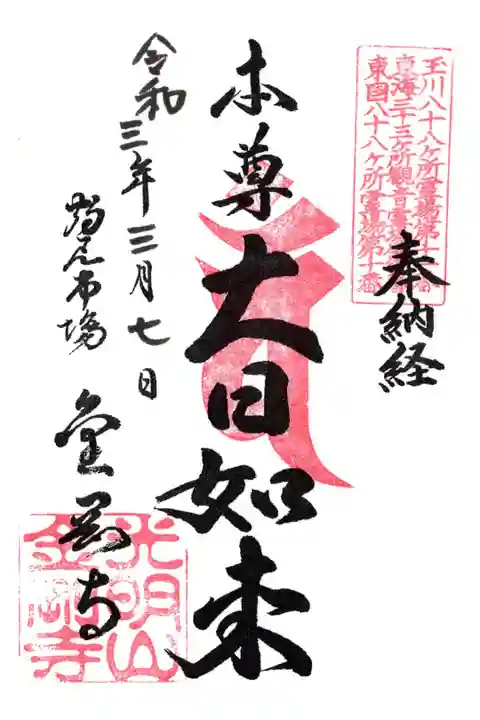 玉川八十八ヶ所霊場第十番
東海三十三ヶ所観音霊場
東国八十八ヶ所霊場第十番
奉納経
本尊
大日如来
令和三年三月七日
鶴見市場
金剛寺
光明山
金剛寺